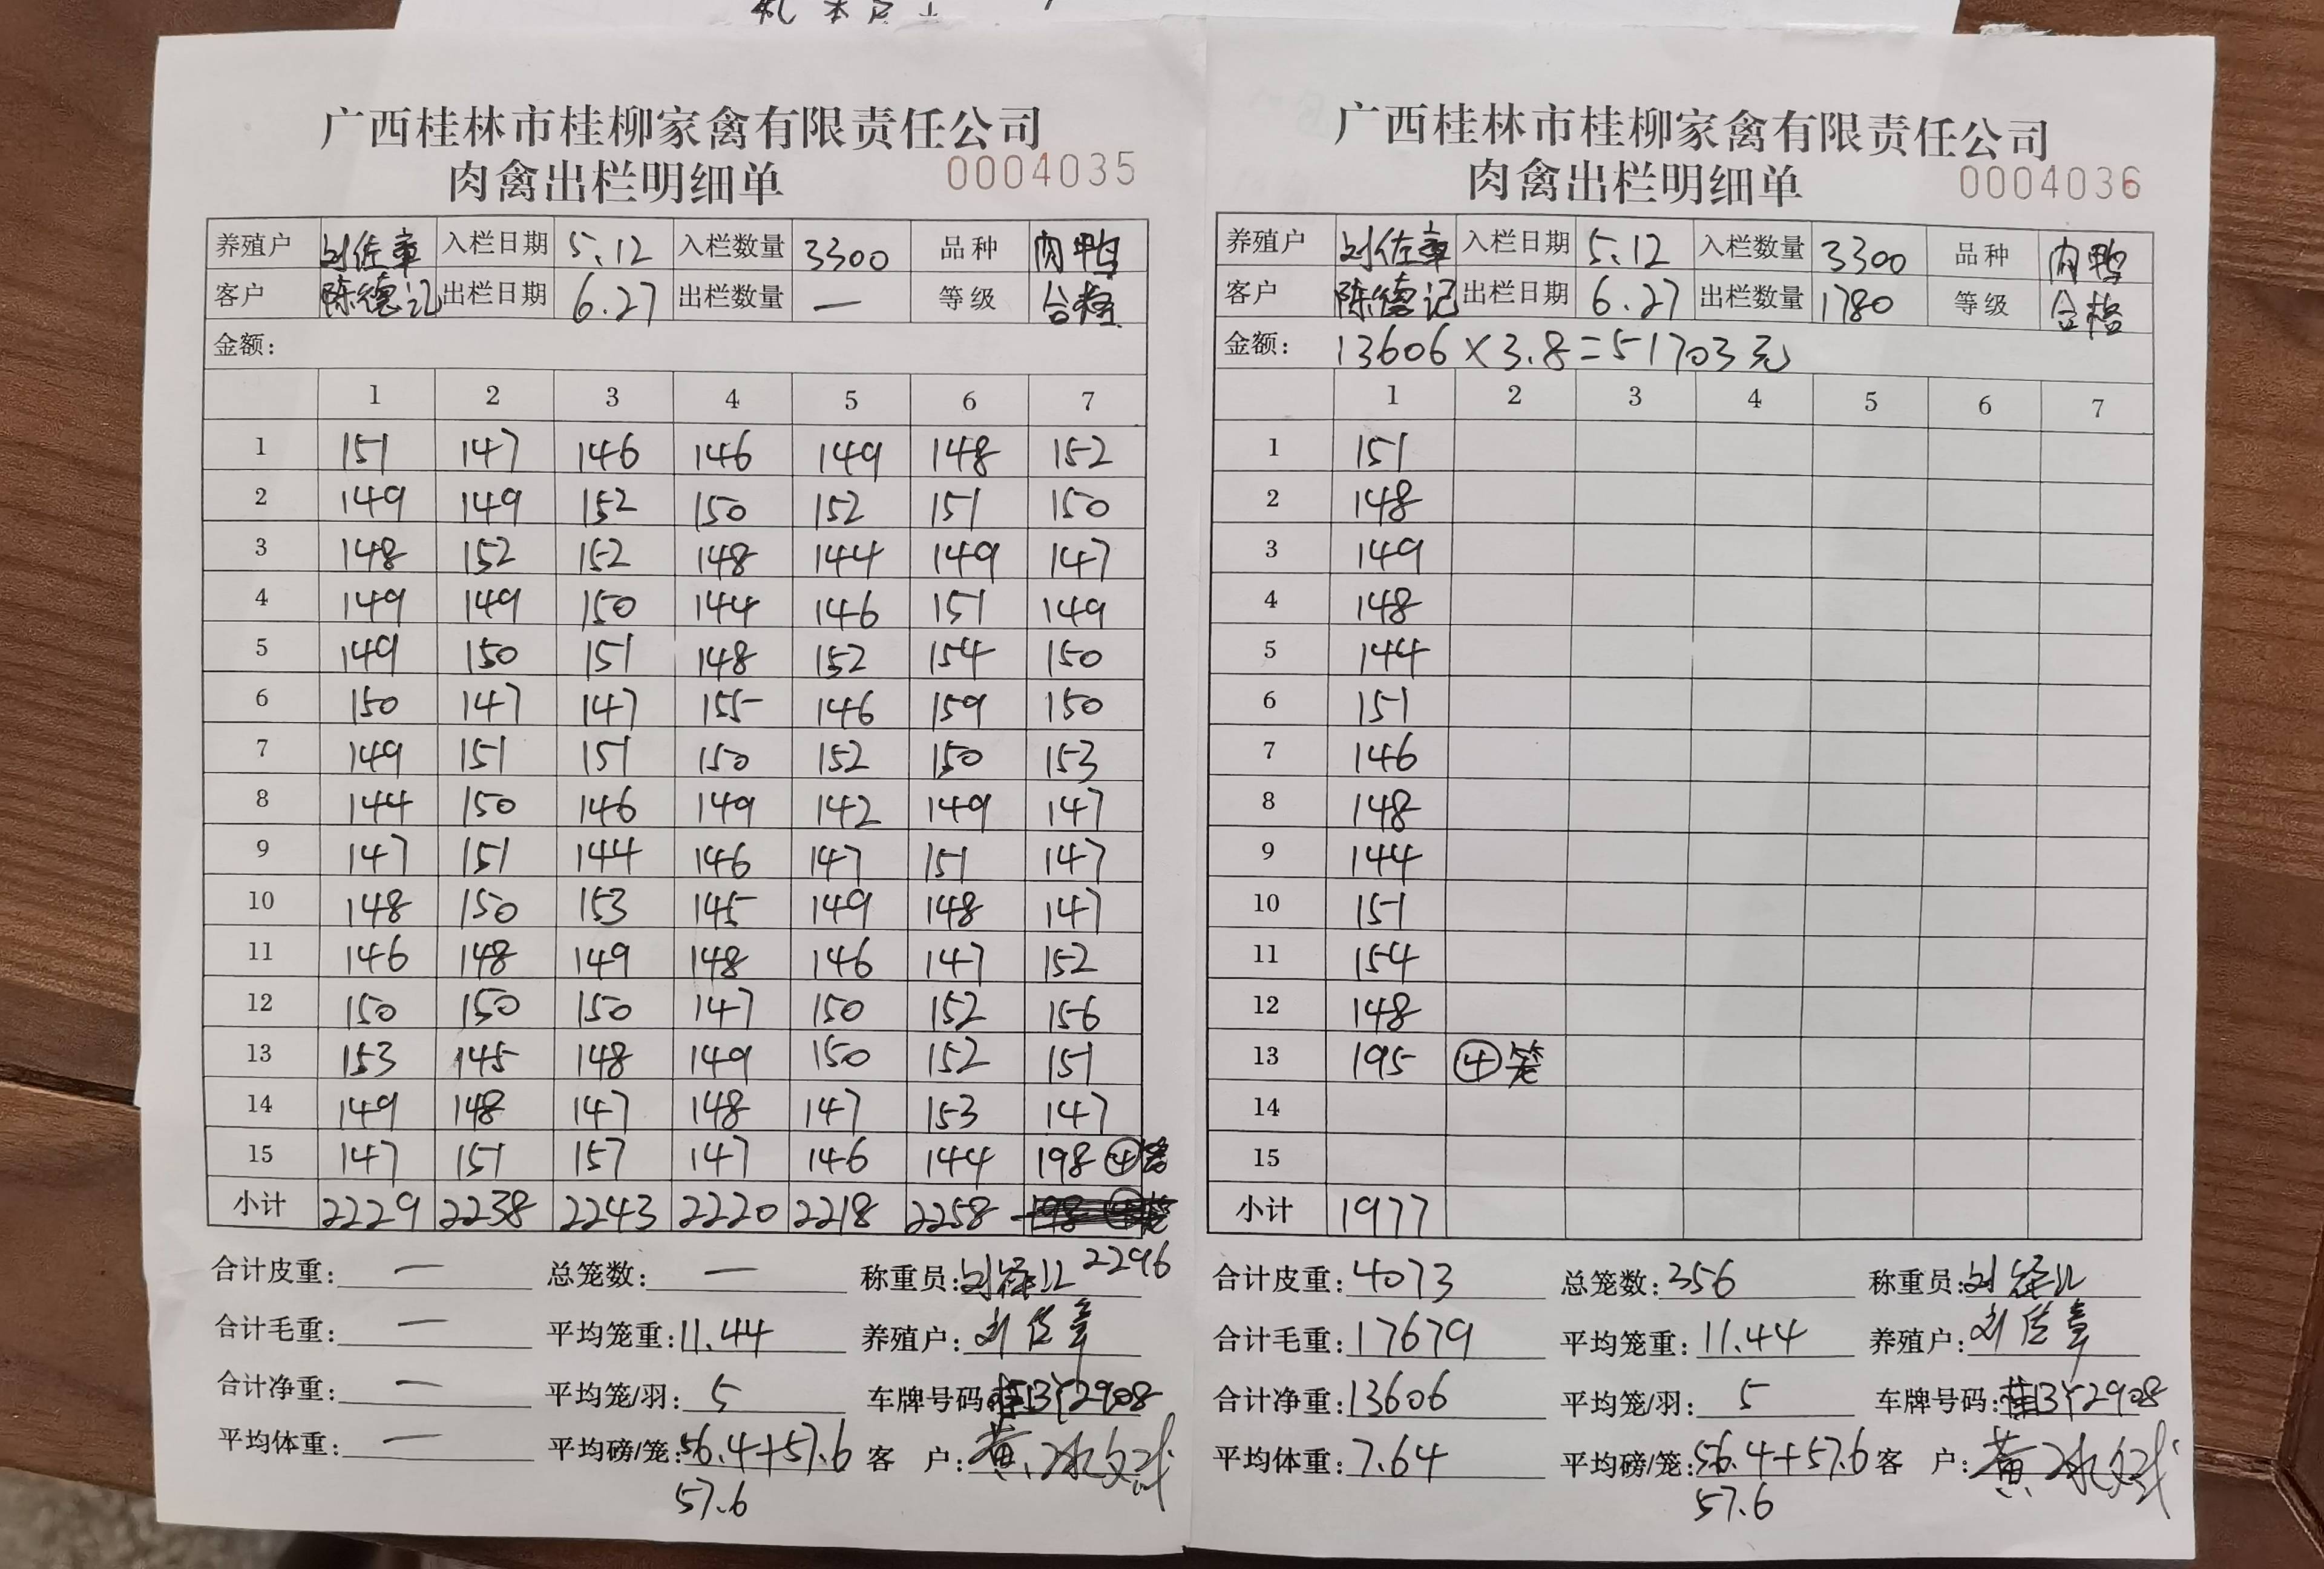 广西桂林市桂柳家禽有限责任公司
肉禽出栏明细单 0004035
养殖户 刘佐章 入栏日期 5.12 入栏数量 3300 品种 肉鸭
客户 陈德记 出栏日期 6.27 出栏数量 — 等级 合格
金额:
1 2 3 4 5 6 7
1 151 147 146 146 149 148 152
2 149 149 152 150 152 151 150
3 148 152 152 148 144 149 147
4 149 149 150 144 146 151 149
5 149 150 151 148 152 154 150
6 150 147 147 155 146 159 150
7 149 151 151 150 152 150 153
8 144 150 146 149 142 149 147
9 147 151 144 146 147 151 147
10 148 150 153 145 149 148 147
11 146 148 149 148 146 147 152
12 150 150 150 147 150 152 156
13 153 145 148 149 150 152 151
14 149 148 147 148 147 153 147
15 147 151 157 147 146 144 198 ④笼
小计 2229 2238 2243 2220 2218 2258
2296
合计皮重: — 总笼数: — 称重员:
合计毛重: — 平均笼重: 11.44 养殖户: 刘佐章
合计净重: — 平均笼/羽: 5 车牌号码: 桂BY2908
平均体重: — 平均磅/笼: 56.4+57.6 客 户:
57.6
广西桂林市桂柳家禽有限责任公司
肉禽出栏明细单 0004036
养殖户 刘佐章 入栏日期 5.12 入栏数量 3300 品种 肉鸭
客户 陈德记 出栏日期 6.27 出栏数量 1780 等级 合格
金额: 13606×3.8=51703元
1 2 3 4 5 6 7
1 151
2 148
3 149
4 148
5 144
6 151
7 146
8 148
9 144
10 151
11 154
12 148
13 195 ④笼
14
15
小计 1977
合计皮重: 4073 总笼数: 356 称重员:
合计毛重: 17679 平均笼重: 11.44 养殖户: 刘佐章
合计净重: 13606 平均笼/羽: 5 车牌号码: 桂BY2908
平均体重: 7.64 平均磅/笼: 56.4+57.6 客 户:
57.6